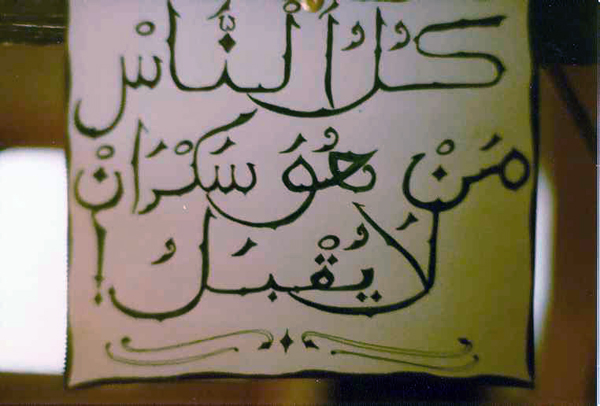 كُلُ أُلنَّاسْ
مَنْ هُوَ سَكْرَانْ
لَا يُقْبَلُ!